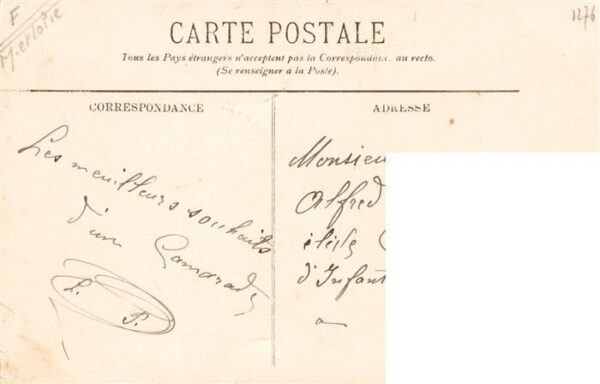 F
M. et Loire
1276
CARTE POSTALE
Tous les Pays étrangers n'acceptent pas la Correspondance au recto.
(Se renseigner à la Poste).
CORRESPONDANCE
ADRESSE
Les meuilleurs souhaits
d'un Camarade
L. P.
Monsieu
Alfred
d'Infant
a